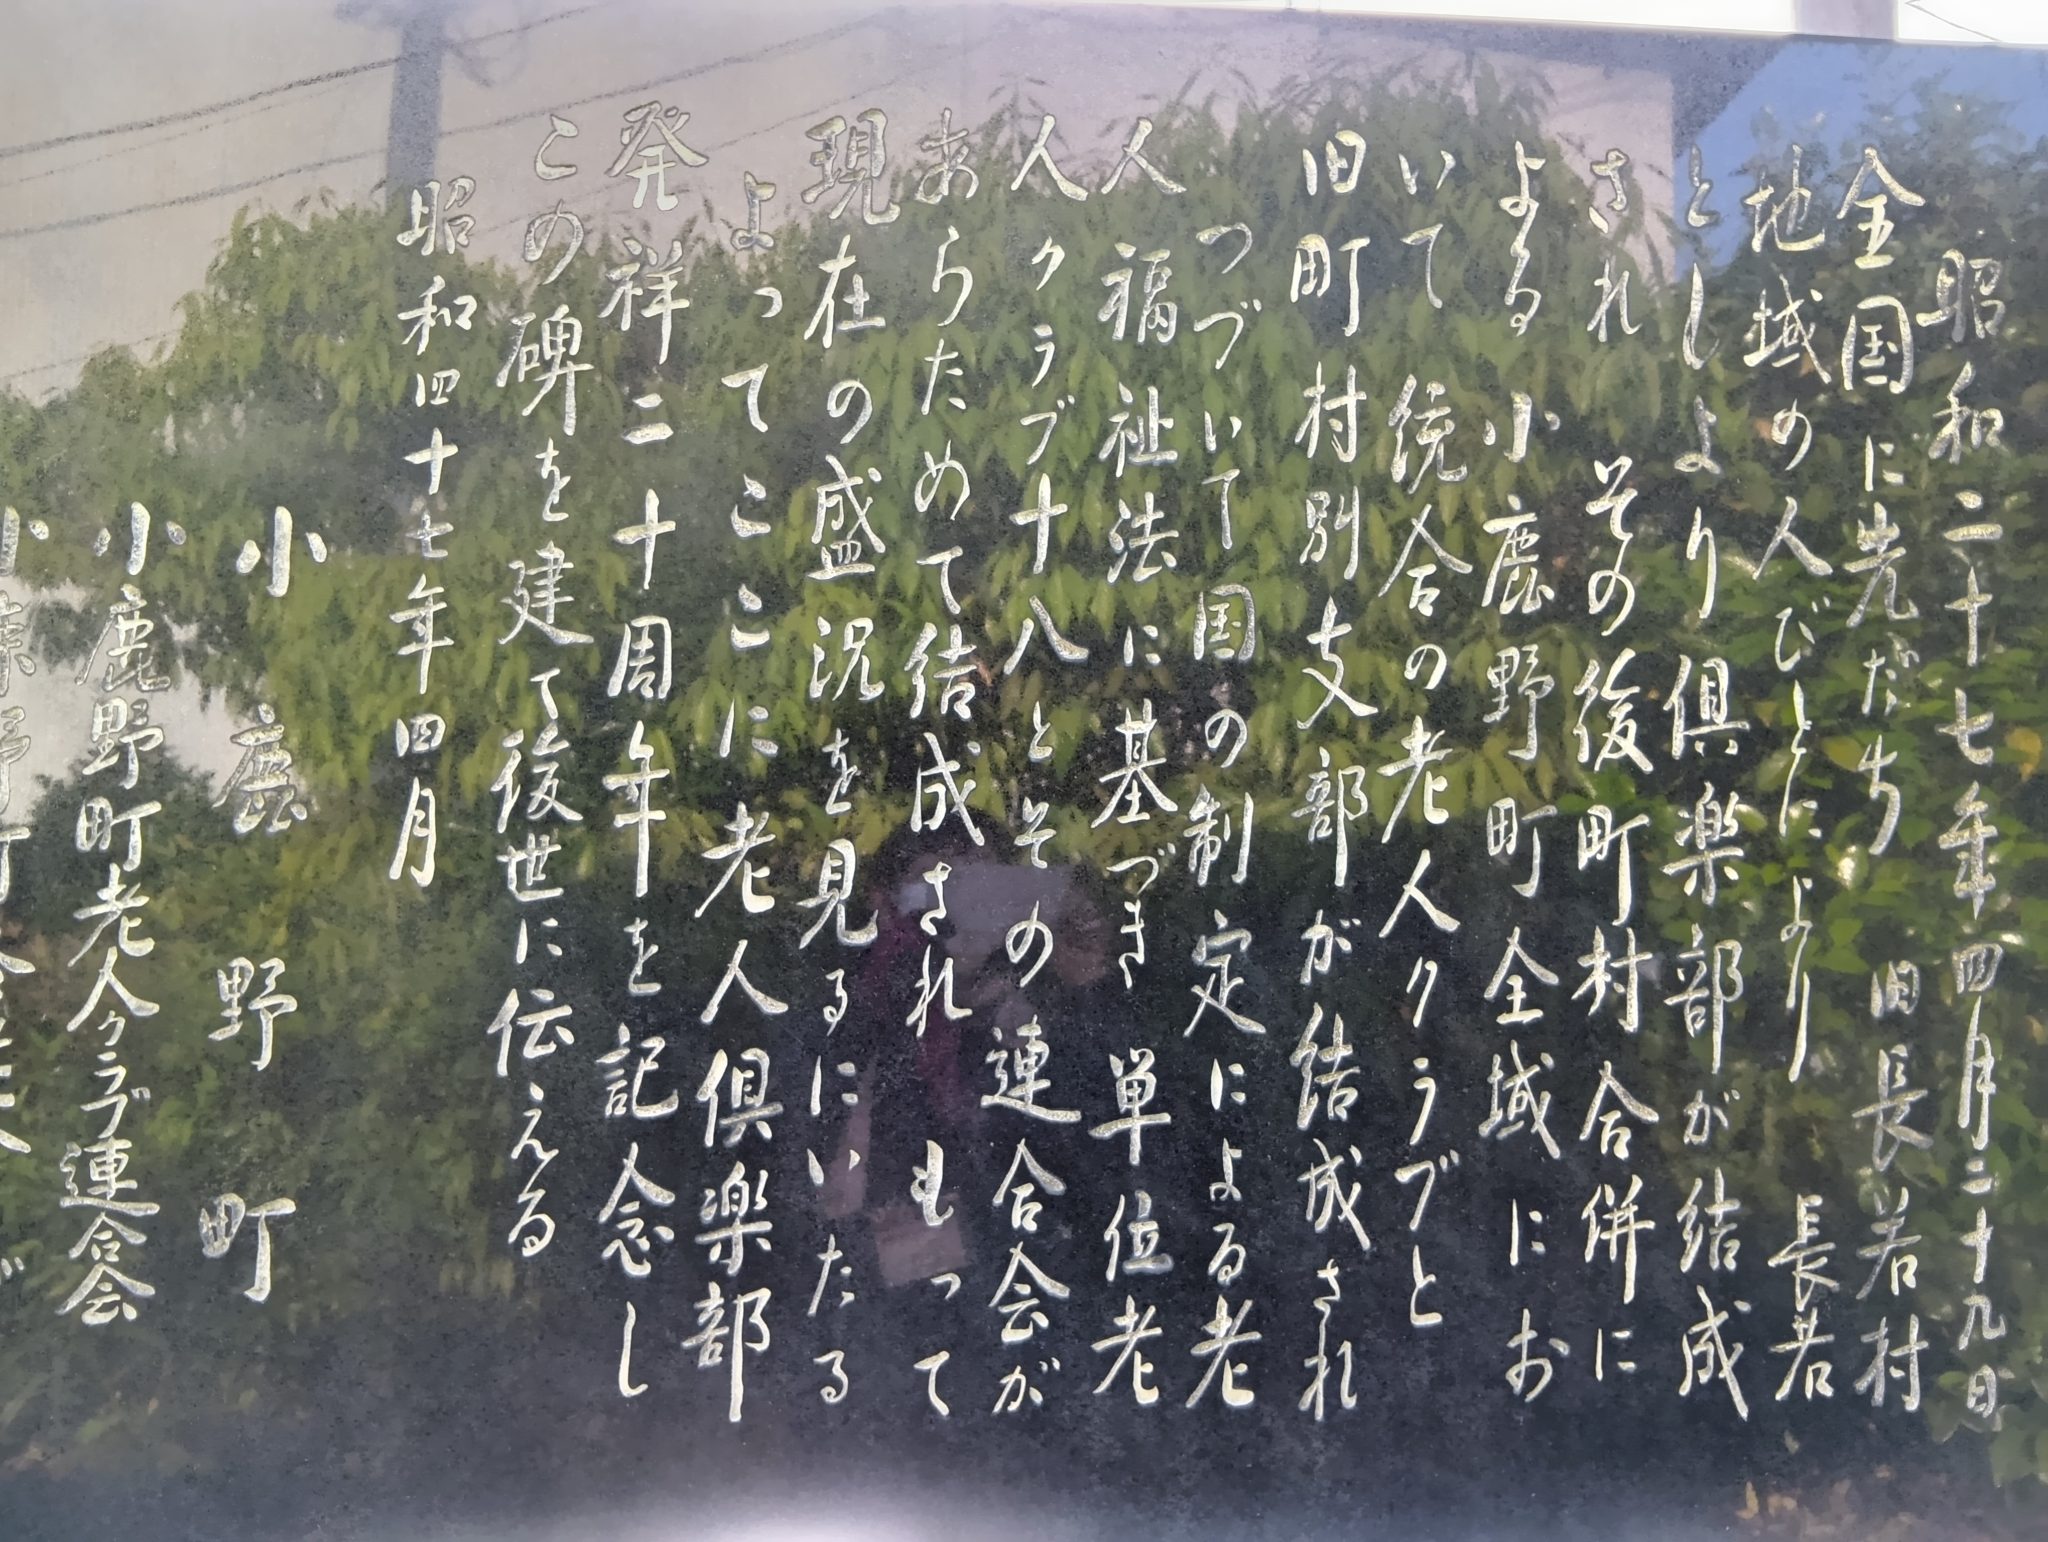 昭和二十七年四月二十九日
全国に先だち 旧長若村
地域の人びとにより 長若
としより倶楽部が結成
され その後町村合併に
よる 小鹿野町全域にお
いて 統合の老人クラブと
旧町村別支部が結成され
つづいて国の制定による老
人福祉法に基づき 単位老
人クラブ十八とその連合会が
あらためて結成され もって
現在の盛況を見るにいたる
よってここに老人倶楽部
発祥二十周年を記念し
この碑を建て後世に伝える
昭和四十七年四月
小鹿野町
小鹿野町老人クラブ連合会